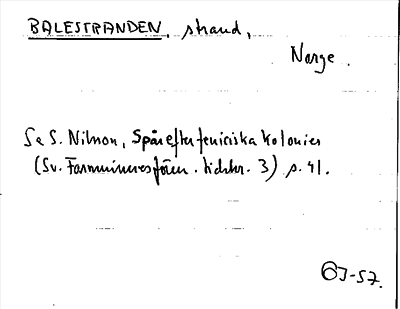 BALESTRANDEN, strand,
Norge.
Se S. Nilsson, Spår efter feniciska kolonier
(Sv. Fornminnesfören. tidskr. 3) p. 41.
OJ-57.